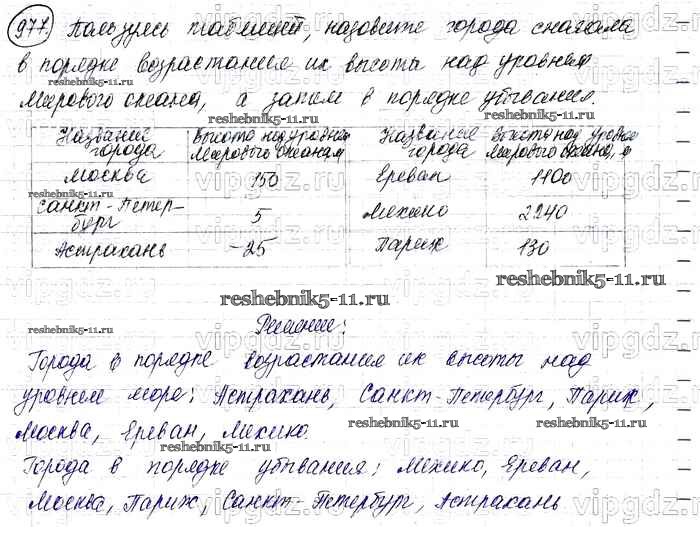 977. Пользуясь таблицей, назовите города сначала
в порядке возрастания их высоты над уровнем
Мирового океана, а затем в порядке убывания.
reshebnik5-11.ru
Название города | Высота над уровнем Мирового океана, м | Название города | Высота над уровнем Мирового океана, м
Москва | 150 | Ереван | 1100
Санкт-Петер-
бург | 5 | Мехико | 2240
Астрахань | -25 | Париж | 130
reshebnik5-11.ru
reshebnik5-11.ru
Решение:
Города в порядке возрастания их высоты над
уровнем море: Астрахань, Санкт-Петербург, Париж,
Москва, Ереван, Мехико.
reshebnik5-11.ru
Города в порядке убывания: Мехико, Ереван,
Москва, Париж, Санкт-Петербург, Астрахань
vipgdz.ru